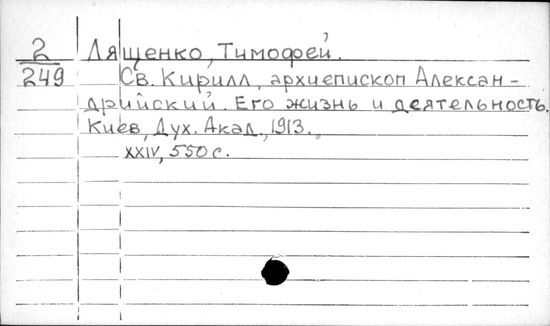 2 Лященко, Тимофей.
249 Св. Кирилл, архиепископ Алексан-
дрийский. Его жизнь и деятельность.
Киев, Дух. Акад., 1913.
XXIV, 550 с.